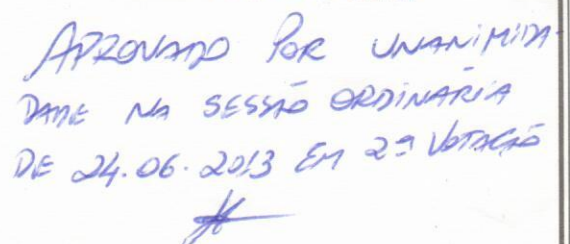 APROVADO POR UNANIMIDA-
DADE NA SESSÃO ORDINÁRIA
DE 24.06.2013 EM 2ª VOTAÇÃO